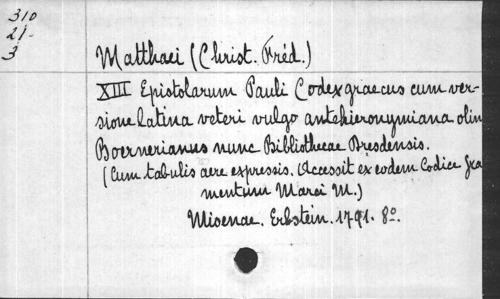 310
21-
3
Matthaei (Christ. Fréd.)
XIII Epistolarum Pauli Codex graecus cum ver-
sione latina veteri vulgo antehieronymiana olim
Boernerianus nunc Bibliothecae Dresdensis.
(Cum tabulis aere expressis. Accessit ex eodem Codice fra
mentum Marci M.)
Misenae. Erbstein. 1791. 8º.